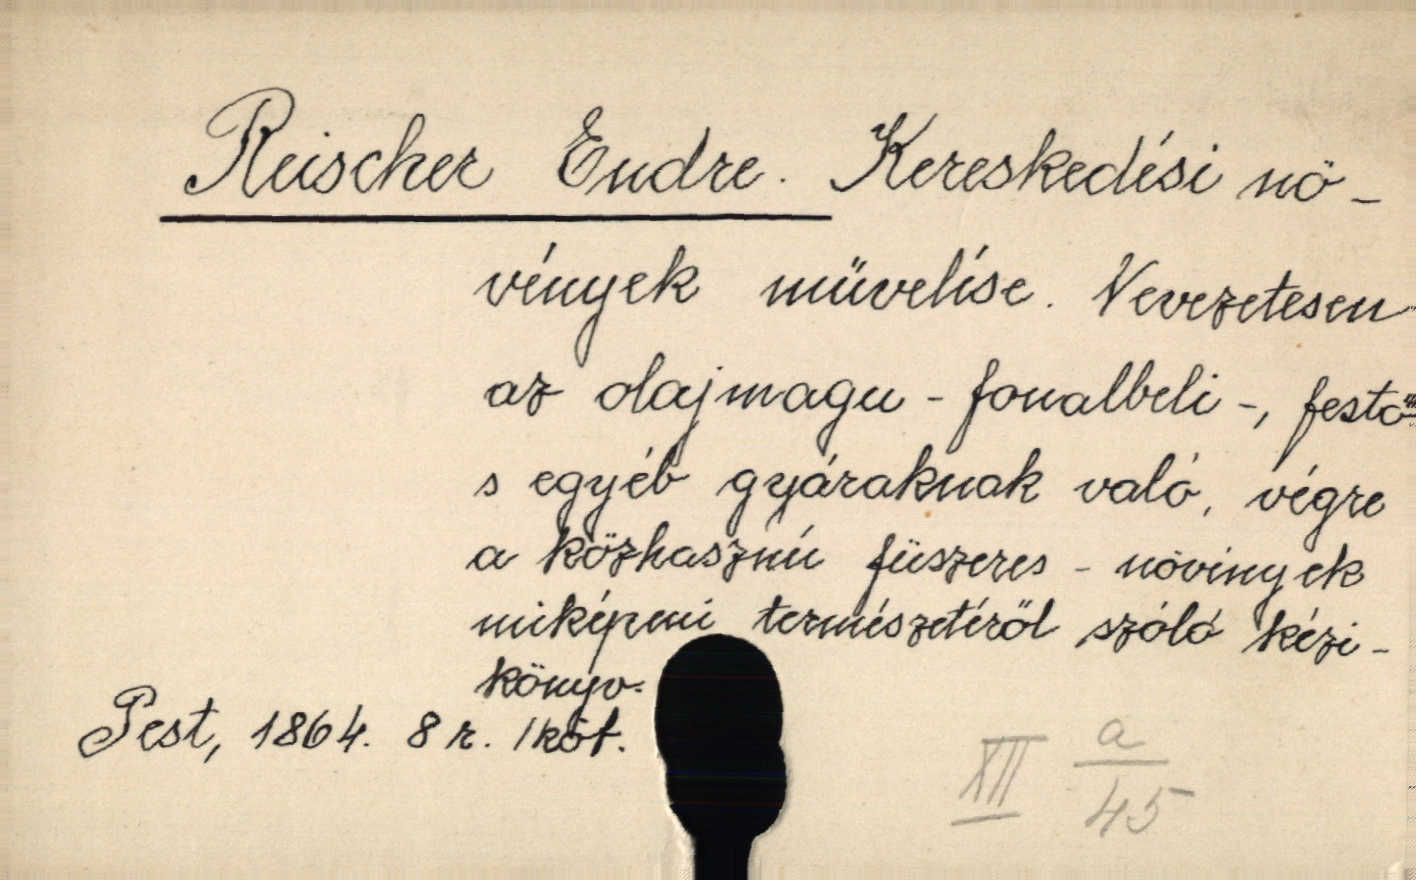 Reischer Endre. Kereskedési nö-
vények müvelése. Nevezetesen
az olajmagu - fonalbeli -, festő-
s egyéb gyáraknak való, végre
a közhasznú füszeres - növények
miképeni természetéről szóló kézi-
könyv.
Pest, 1864. 8 r. 1 köt.
XII a/45